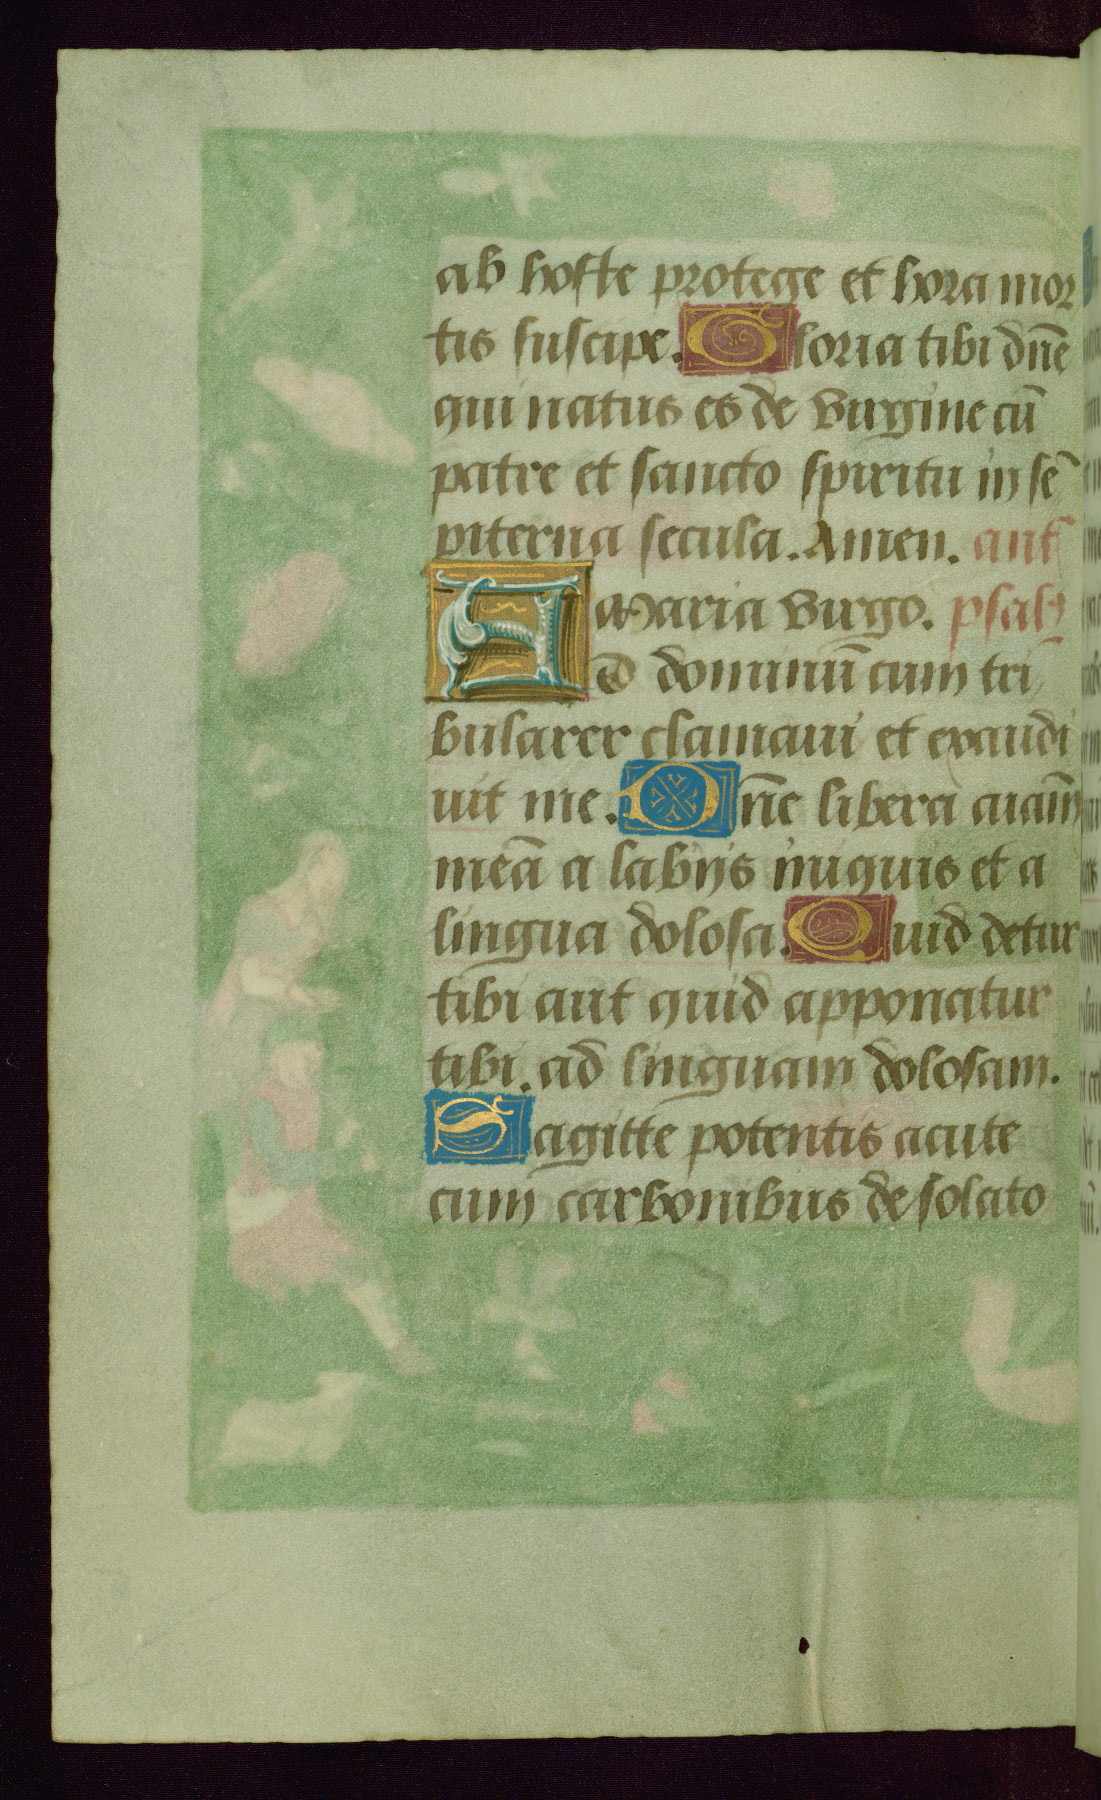 ab hoste protege et hora mor
tis suscipe. Gloria tibi dn̄e
qui natus es de virgine cū
patre et sancto spiritu in sē
piterna secula. Amen. ant
Maria virgo. psal
Ad dominū cum tri
bularer clamavi et exaudi
uit me. Dn̄e libera aīam
meā a labijs iniquis et a
lingua dolosa. Quid detur
tibi aut quid apponatur
tibi. ad linguam dolosam.
Sagitte potentis acute
cum carbonibus desolato